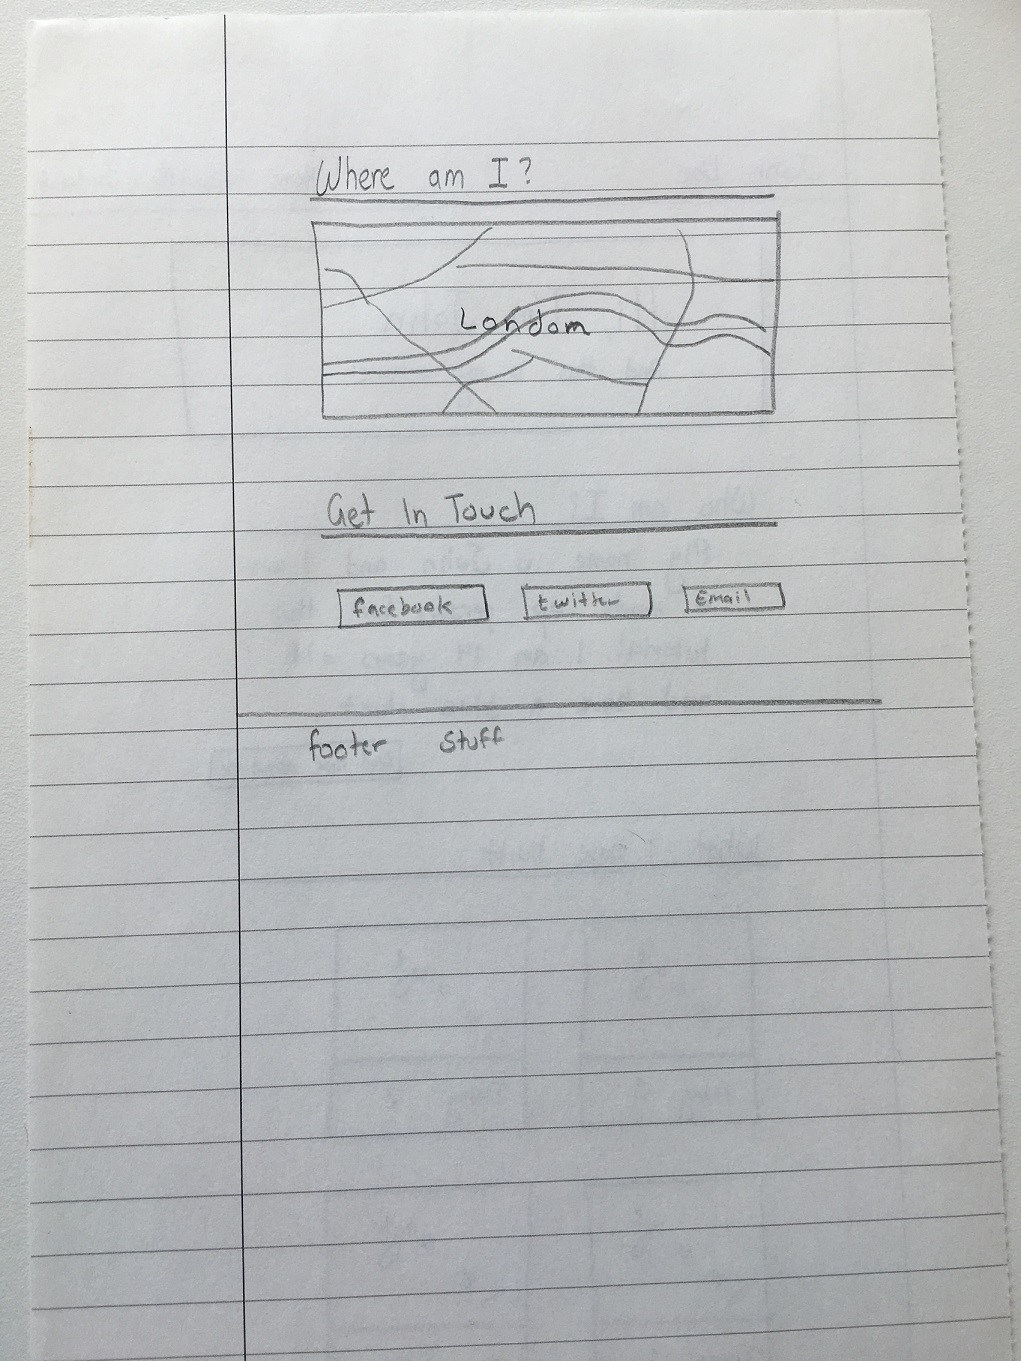 Where am I?
London
Get In Touch
facebook twitter Email
footer stuff